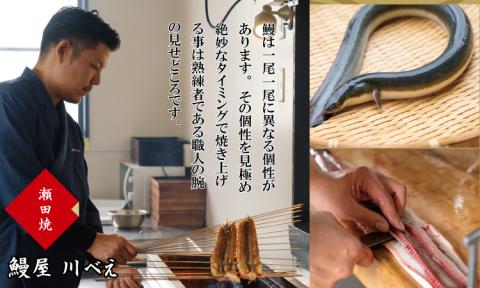 鰻は一尾一尾に異なる個性が
あります。その個性を見極め
絶妙なタイミングで焼き上げ
る事は熟練者である職人の腕
の見せどころです。
瀬田焼
鰻屋 川べえ